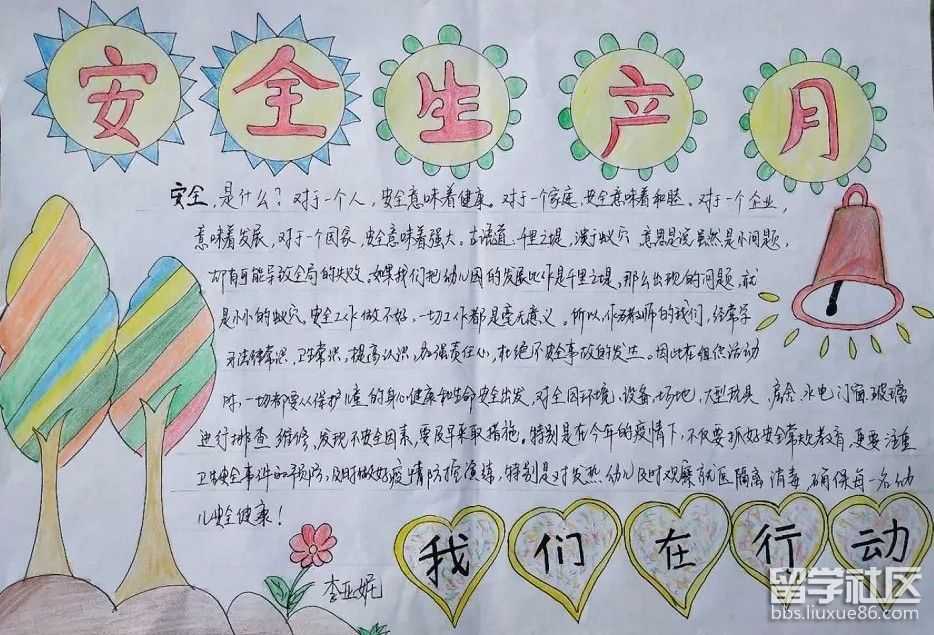 安全生产月
安全,是什么?对于一个人,安全意味着健康。对于一个家庭,安全意味着和睦。对于一个企业,
意味着发展,对于一个国家,安全意味着强大。古语道:千里之堤,溃于蚁穴 意思是说虽然是小问题,
却有可能导致全局的失败。如果我们把幼儿园的发展比作是千里之堤,那么出现的问题,就
是小小的蚁穴。安全工作做不好,一切工作都是毫无意义。所以,作为教师的我们,经常学
习法律常识、卫生常识,提高认识,加强责任心,杜绝不安全事故的发生。因此在组织活动
时,一切都要从保护儿童的身心健康和生命安全出发,对全园环境、设备、场地、大型玩具、房舍、水电、门窗、玻璃
进行排查、维修、发现不安全因素,要及早采取措施。特别是在今年的疫情下,不仅要抓好安全常规教育,更要注重
卫生安全事件的预防,及时做好疫情防控演练,特别是对发热幼儿及时观察就医隔离消毒,确保每一名幼
儿安全健康!
我们在行动
李亚妮
留学社区
bbs.liuxue86.com